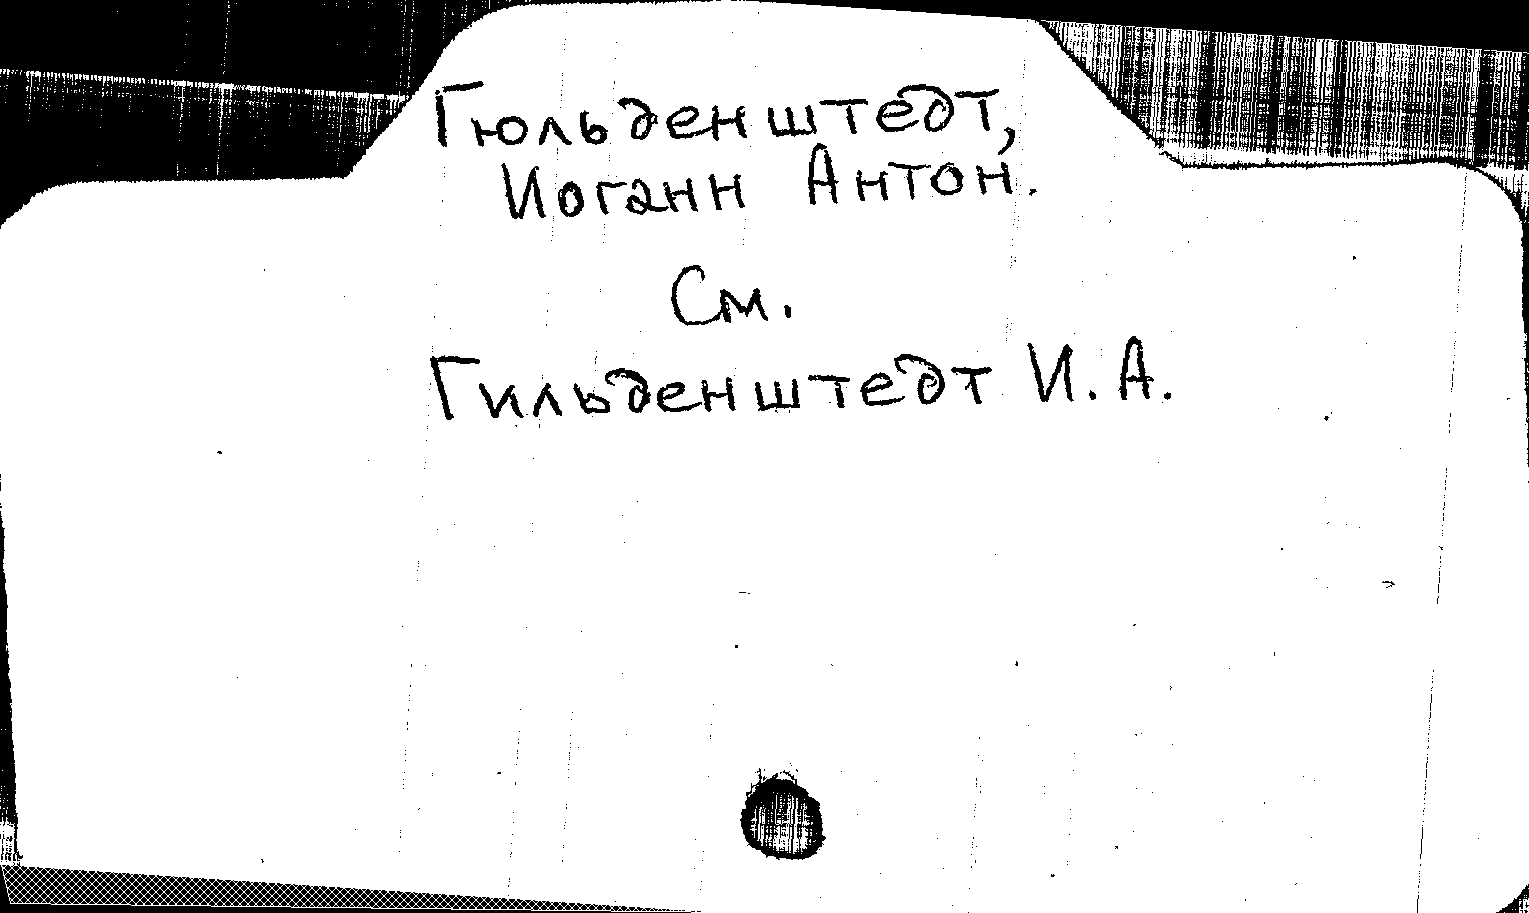 Гюльденштедт,
Иоганн Антон.
См.
Гильденштедт И. А.